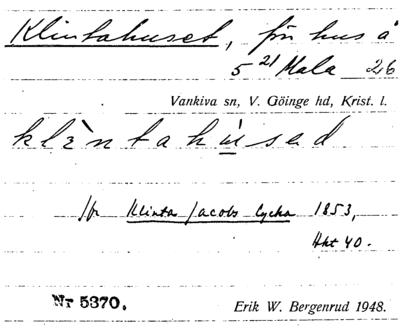 Klintahuset, förr hus å
5²¹ Mala 26
Vankiva sn, V. Göinge hd, Krist. l.
klèntahu̱̍səd
jfr Klinta Jacobs Lycka 1853,
Akt 40.
Nr 5370. Erik W. Bergenrud 1948.